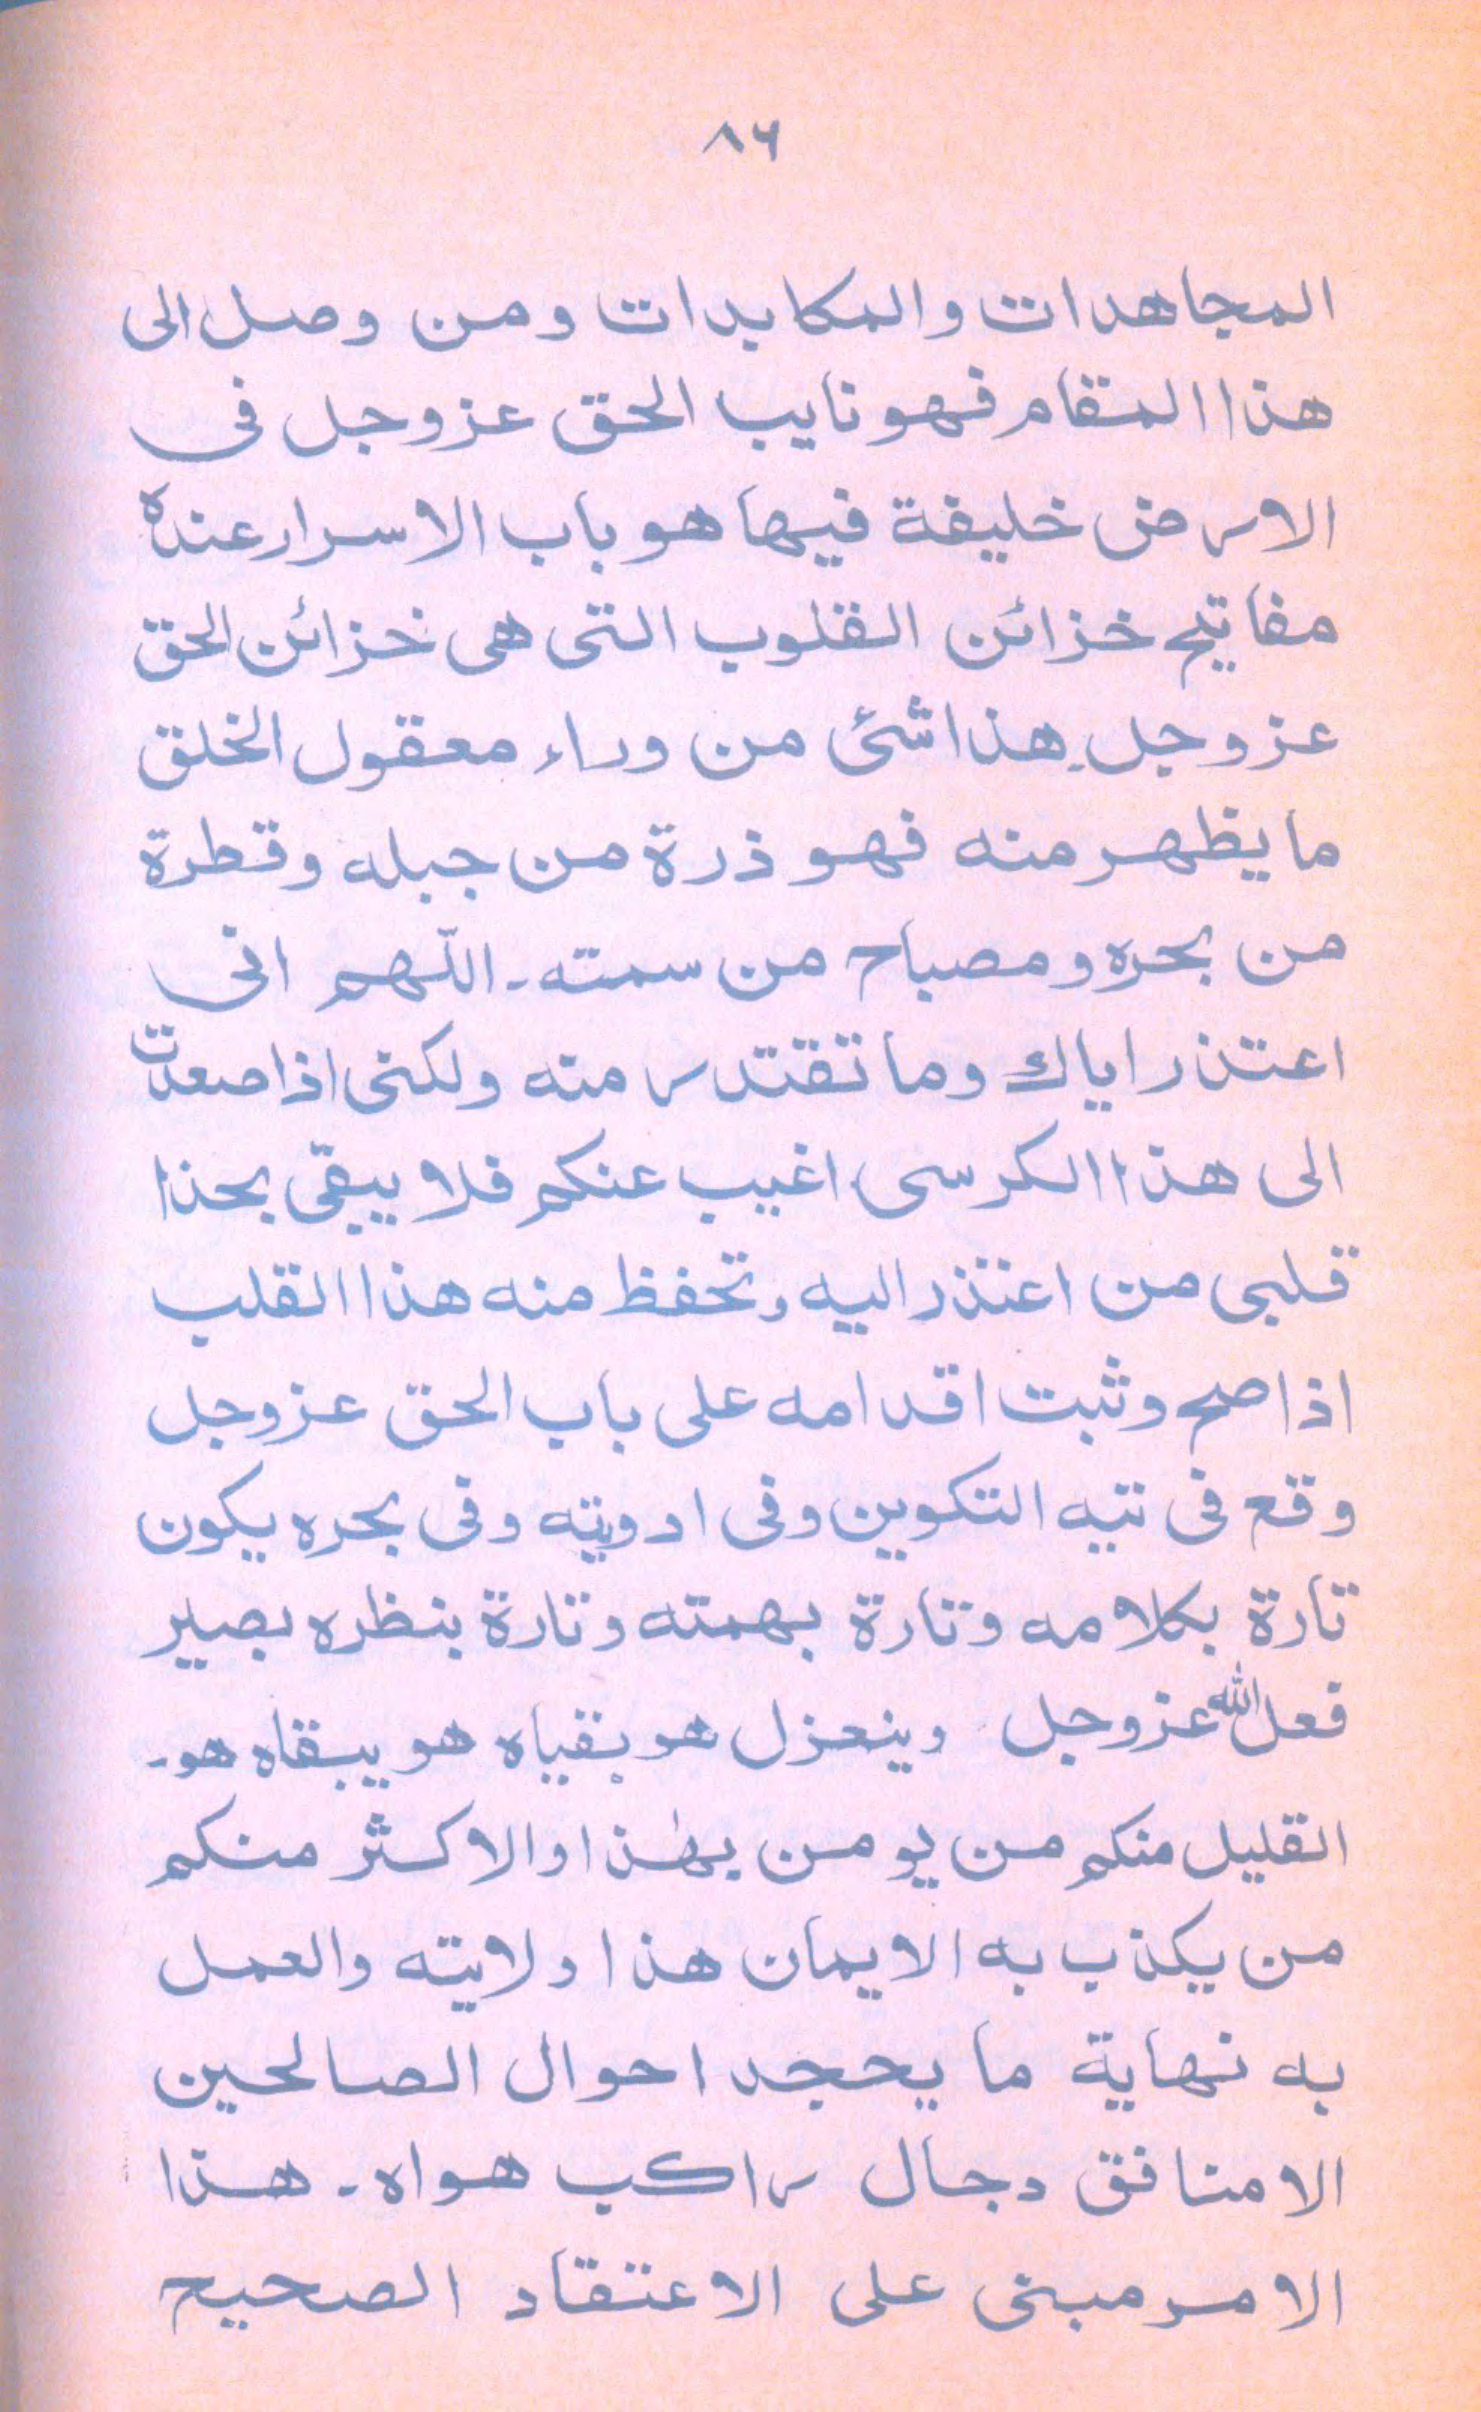 ٨٦
المجاهدات والمكابدات ومن وصل الى
هذا المقام فهو نايب الحق عز وجل فى
الارض خليفة فيها هو باب الاسرار عنده
مفاتيح خزائن القلوب التى هى خزائن الحق
عز وجل هذا شئ من وراء معقول الخلق
ما يظهر منه فهو ذرة من جبله وقطرة
من بحره ومصباح من سمته۔ اللّهم انى
اعتذر اياك وما تقتدر منه ولكنى اذا صعدت
الى هذا الكرسى اغيب عنكم فلا يبقى بحذا
قلبى من اعتذر اليه وتحفظ منه هذا القلب
اذا صح وثبت اقدامه على باب الحق عز وجل
وقع فى تيه التكوين وفى ادويته وفى بحره يكون
تارة بكلامه وتارة بهمته وتارة بنظره يصير
فعل الله عز وجل وينعزل هو بقياه هو يبقاه هو۔
القليل منكم من يومن بهٰذا والاكثر منكم
من يكذب به الايمان هذا ولايته والعمل
به نهاية ما يجحد احوال الصالحين
الا منافق دجال راكب هواه۔ هذا
الامر مبنى على الاعتقاد الصحيح